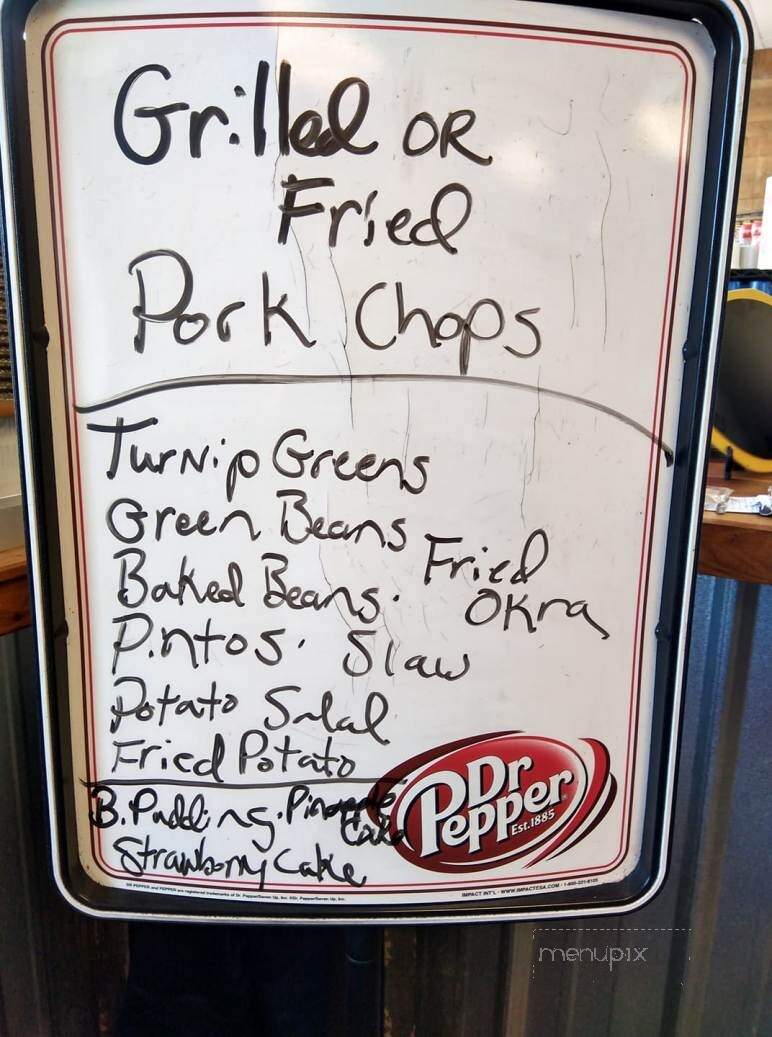 Grilled OR
Fried
Pork Chops
Turnip Greens
Green Beans
Baked Beans. Fried
Okra
Pintos. Slaw
Potato Salad
Fried Potato
B. Pudding. Pineapple
Cake
Strawberry Cake
Dr Pepper
Est.1885
DR PEPPER and PEPPER are registered trademarks of Dr Pepper/Seven Up, Inc.
IMPACT INT'L - WWW.IMPACTESA.COM - 1-800-321-8105
menupix